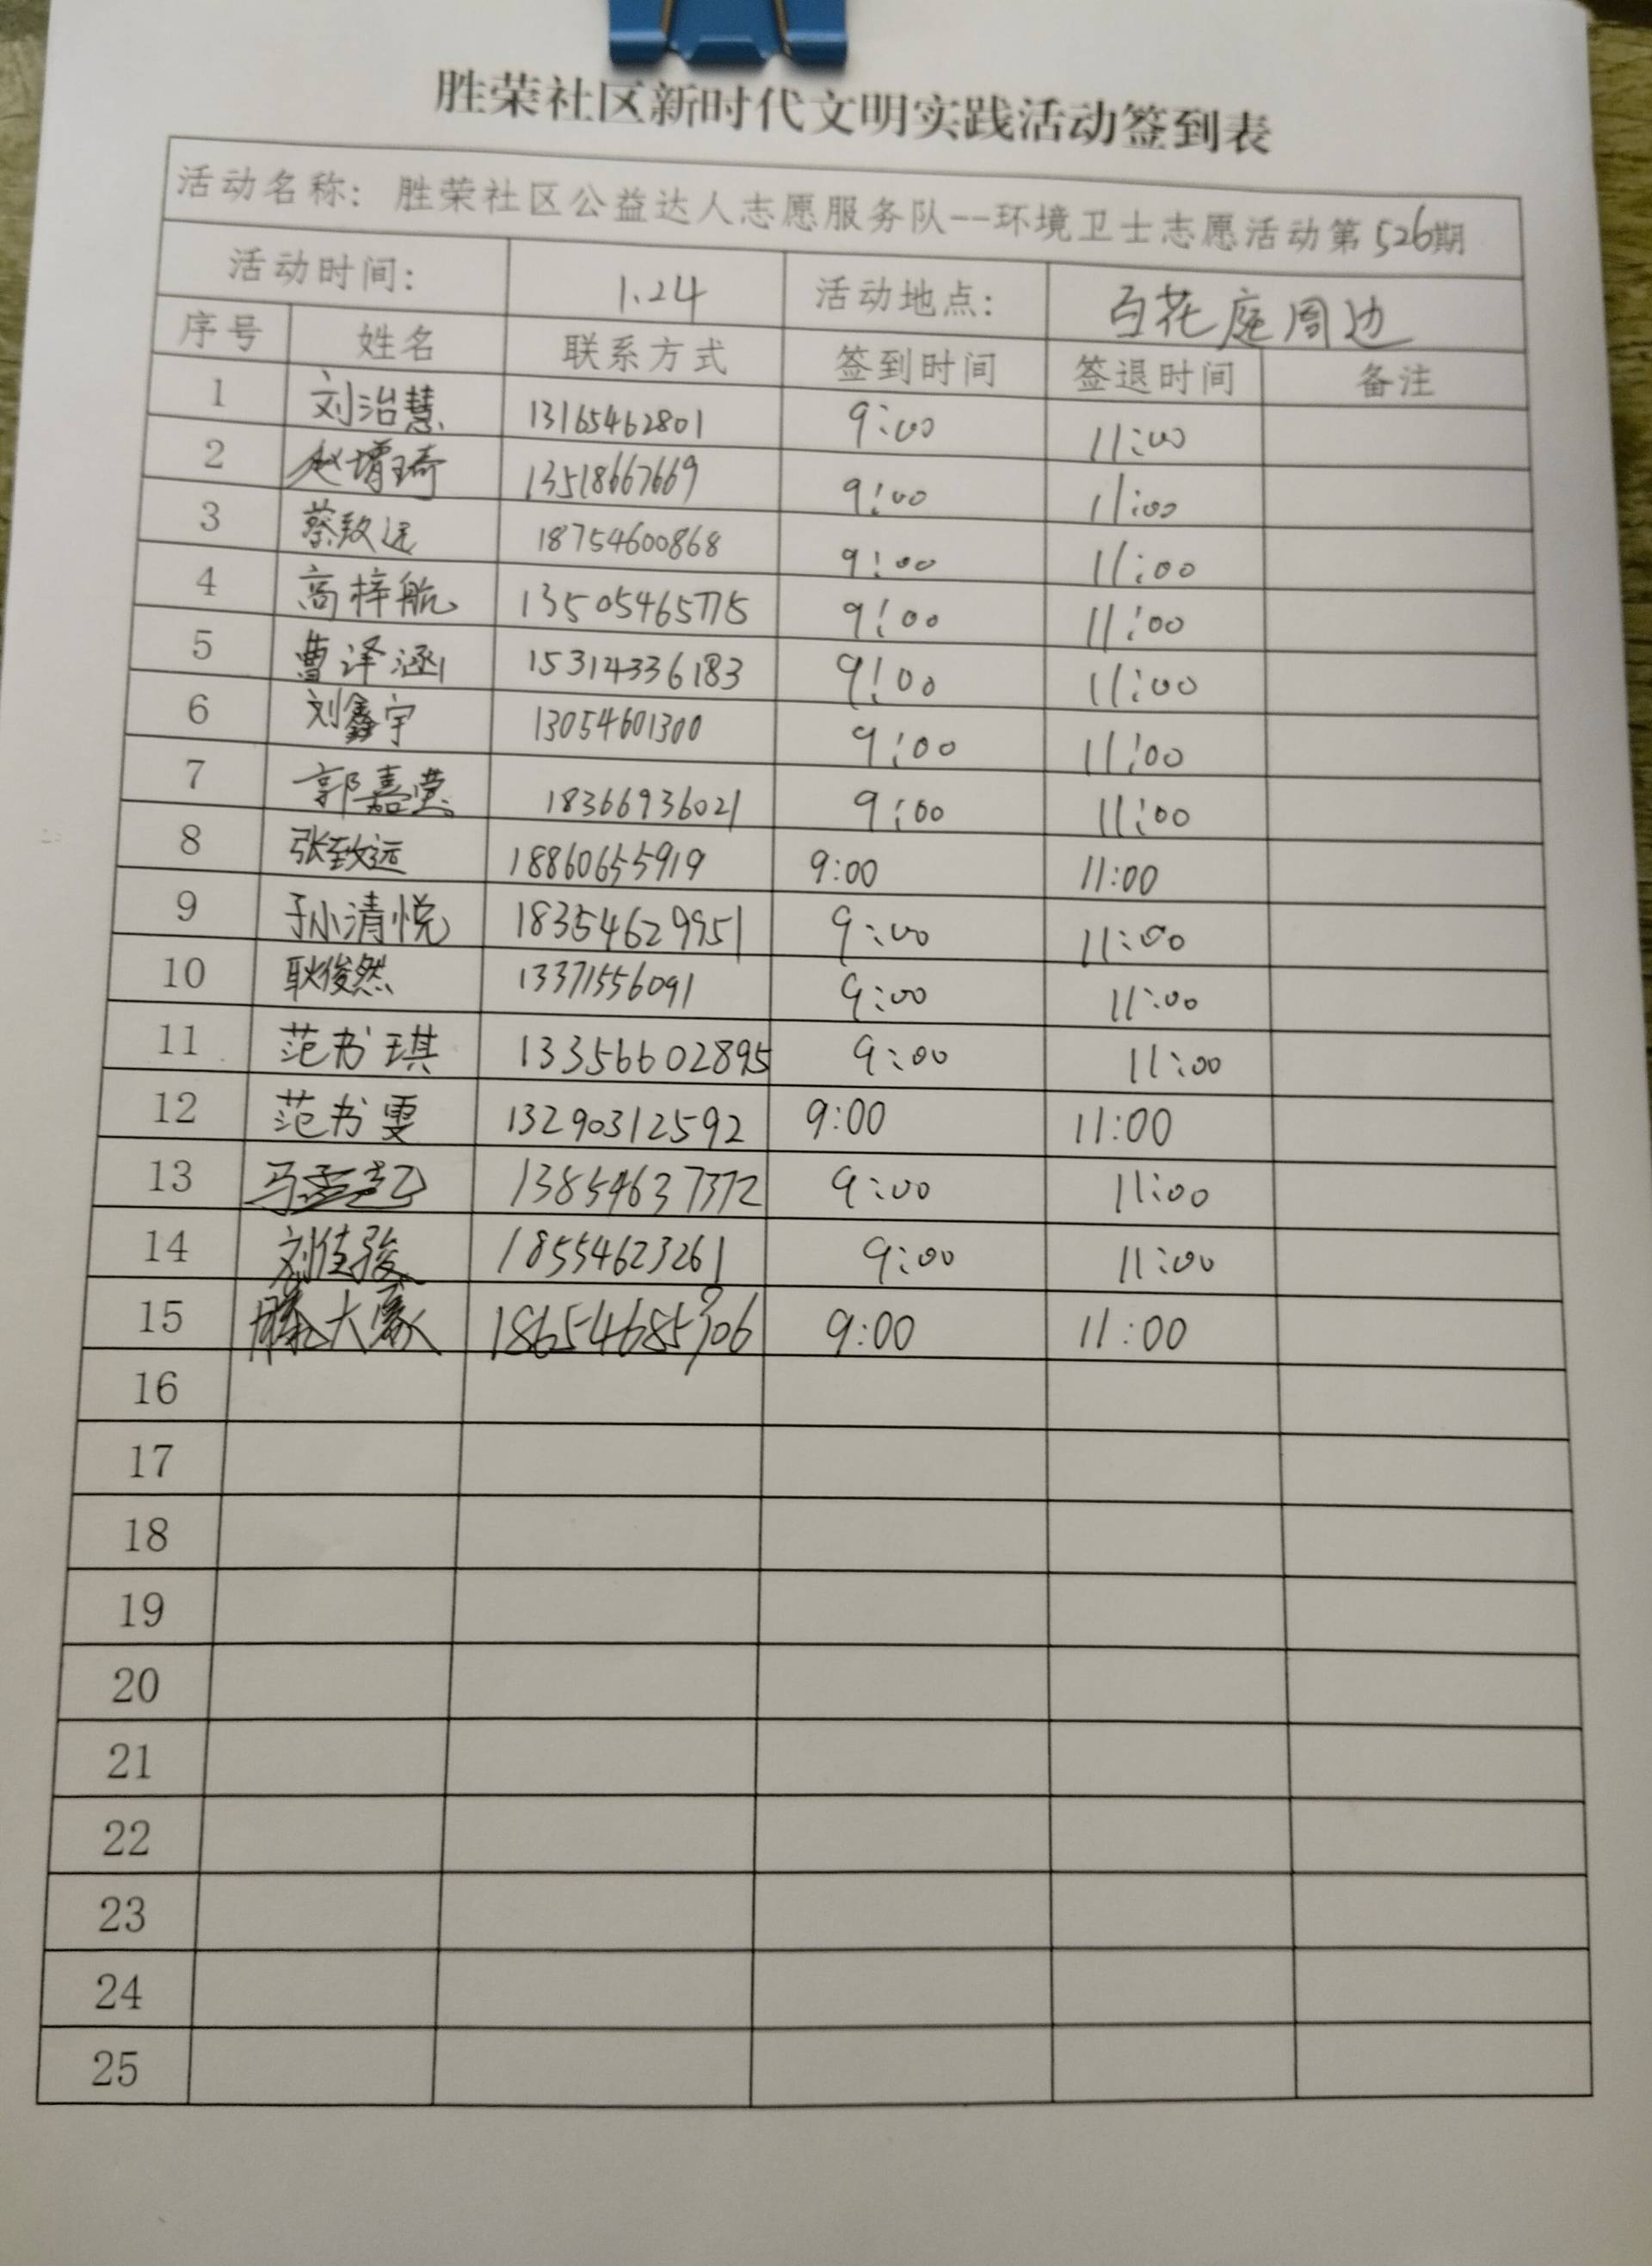 胜荣社区新时代文明实践活动签到表
活动名称：胜荣社区公益达人志愿服务队--环境卫士志愿活动第526期
活动时间： 1.24 活动地点： 百花庭周边
序号 姓名 联系方式 签到时间 签退时间 备注
1 刘治慧 13165462801 9:00 11:00
2 赵增琦 13518667669 9:00 11:00
3 蔡致远 18754600868 9:00 11:00
4 高梓航 13505465775 9:00 11:00
5 曹泽涵 15314336183 9:00 11:00
6 刘鑫宇 13054601300 9:00 11:00
7 郭嘉莹 18366936021 9:00 11:00
8 张致远 18860655919 9:00 11:00
9 孙清悦 18354629951 9:00 11:00
10 耿俊然 13371556091 9:00 11:00
11 范书琪 13356602895 9:00 11:00
12 范书雯 13290312592 9:00 11:00
13 13854637372 9:00 11:00
14 刘佳骏 18554623261 9:00 11:00
15 滕大豪 18654685906 9:00 11:00
16
17
18
19
20
21
22
23
24
25